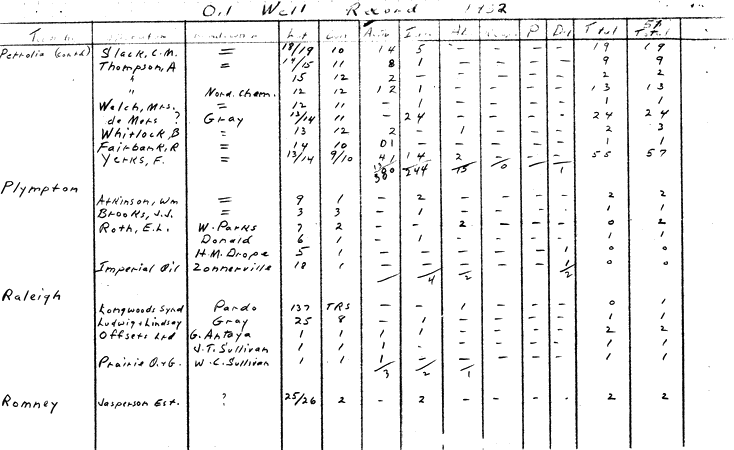 Oil Well Record 1932
Lot Con Total
Total
Petrolia (cont'd) Slack, C.M. = 18/19 10 14 5 — — — — 19 19
Thompson, A = 14/15 11 8 1 — — — — 9 9
" 15 12 2 — — — — — 2 2
" Nord. Chem. 12 12 12 1 — — — — 13 13
Welch, Mrs. = 12 11 — 1 — — — — 1 1
de Mers ? Gray 13/14 11 — 24 — — — — 24 24
Whitlock, B " 13 12 2 — 1 — — — 2 3
Fairbank, R = 14 10 01 — — — — 1 1
Yerks, F. = 13/14 9/10 41 14 2 — — — 55 57
244 15 0 1
Plympton
Atkinson, Wm = 9 1 — 2 — — — — 2 2
Brooks, J.J. = 3 3 — 1 — — — — 1 1
Roth, E.L. W. Parks 7 2 — — 2 — — — 0 2
Donald 6 1 — 1 — — — — 1 1
H.M. Drope 5 1 — — — — — 1 0 0
Imperial Oil Zonnerville 18 1 — — — — — 1 0 0
4 2 2
Raleigh
Longwoods Synd Pardo 137 TRS — — 1 — — — 0 1
Ludwig & Lindsay Gray 25 8 — 1 — — — — 1 1
Offsets Ltd G. Antaya 1 1 1 1 — — — — 2 2
J.T. Sullivan 1 1 1 — — — — — 1 1
Prairie O.&G. W.C. Sullivan 1 1 1 — — — — — 1 1
3 2 1
Romney Jasperson Est. ? 25/26 2 — 2 — — — — 2 2